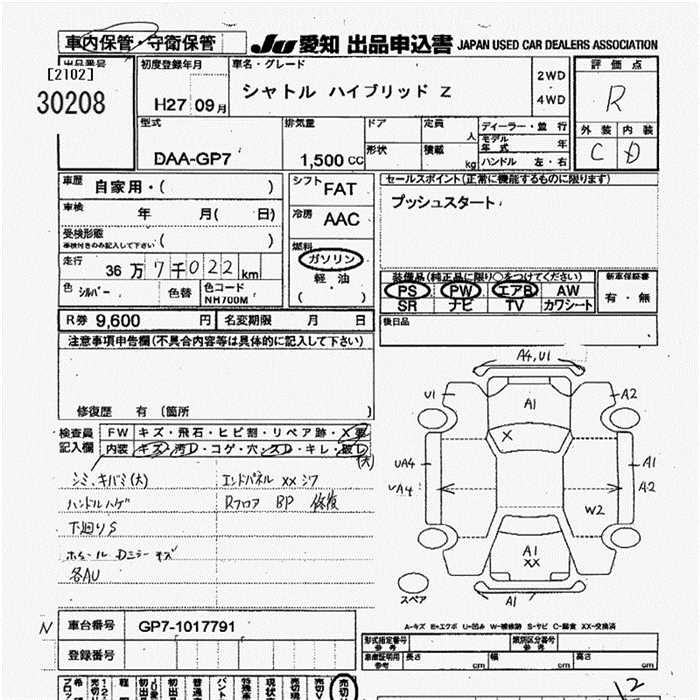 車内保管・守衛保管
JU愛知 出品申込書 JAPAN USED CAR DEALERS ASSOCIATION
出品番号
[2102]
30208
初度登録年月
H27 09月
車名・グレード
シャトル ハイブリッド Z
2WD
4WD
評価点
R
外装 内装
C D
型式
DAA-GP7
排気量
1,500 CC
ドア
形状
定員
人
積載
kg
ディーラー・並行
モデル年式 年
ハンドル 左・右
車歴 自家用・( )
車検 年 月( 日)
受検形態
車検付きのみ記入して下さい ( )
走行 36万7千022km
色 シルバー 色替 色コード NH700M
シフト FAT
冷房 AAC
燃料
ガソリン
軽油
( )
セールスポイント(正常に機能するものに限ります)
プッシュスタート
装備品(純正品に限り○をつけてください)
PS PW エアB AW
SR ナビ TV カワシート
新車保証書
有・無
後日品
R券 9,600 円 名変期限 月 日
注意事項申告欄(不具合内容等は具体的に記入して下さい)
修復歴 有(箇所 )
検査員記入欄
FW キズ・飛石・ヒビ割・リペア跡・X要
内装 キズ・汚D・コゲ・穴・スD・キレ・破し
(大)
シミ、キバミ(大) エンドパネル XX シワ
ハンドルハゲ Rフロア BP 修復
下廻りS
ホイール Dミラー キズ
各AU
A4,U1
U1
A2
A1
X
UA4
UA4
A1
A2
W2
A1
XX
A1
スペア
A-キズ E=エクボ U=凹み W-補修跡 S-サビ C-腐食 XX-交換済
N
車台番号 GP7-1017791
登録番号
型式指定番号 参考
類別区分番号 参考
車庫証明用 参考 長さ cm 幅 cm 高さ cm
12